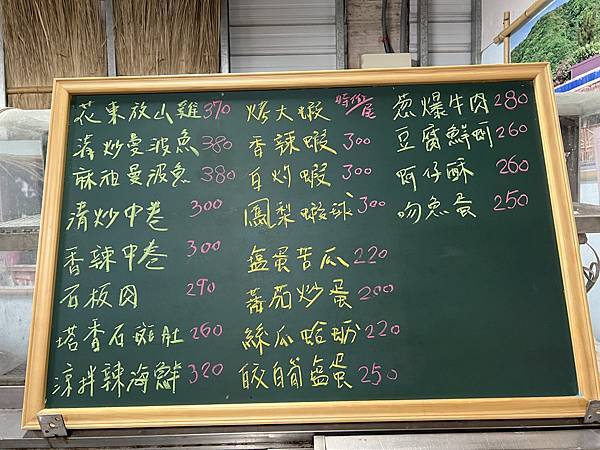 花東放山雞 370
清炒曼波魚 380
麻油曼波魚 380
清炒中卷 300
香辣中卷 300
石板肉 290
塔香石斑肚 260
涼拌辣海鮮 320
烤大蝦 時價/尾
香辣蝦 300
白灼蝦 300
鳳梨蝦球 300
塩蛋苦瓜 220
蕃茄炒蛋 200
絲瓜蛤蜊 220
皎白筍塩蛋 250
蔥爆牛肉 280
豆腐鮮蚵 260
蚵仔酥 260
吻魚蛋 250